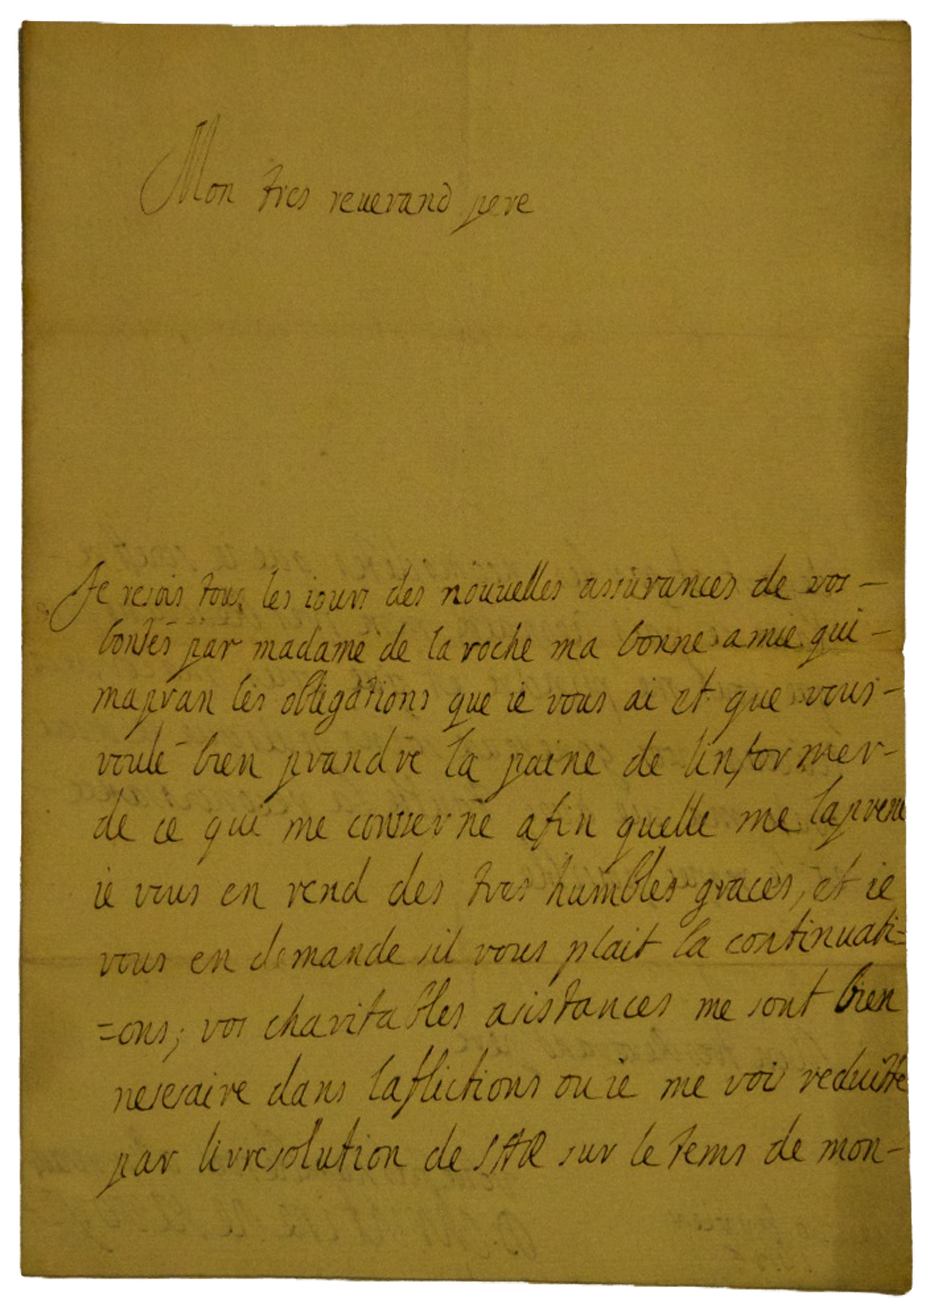 Mon tres reuerand pere
Je resois tous les iours des nouuelles assurances de vos-
bontés par madame de la roche ma bonne amie qui-
mapran les obligations que ie vous ai et que vous-
voulé bien prandre la paine de linformer-
de ce qui me conserne afin quelle me laprene
ie vous en rend des tres humbles graces, et ie
vous en demande sil vous plait la continuati=
=ons; vos charitables asistances me sont bien
nesesaire dans laflictions ou ie me voi reduitte
par lirresolution de SAR sur le tems de mon-